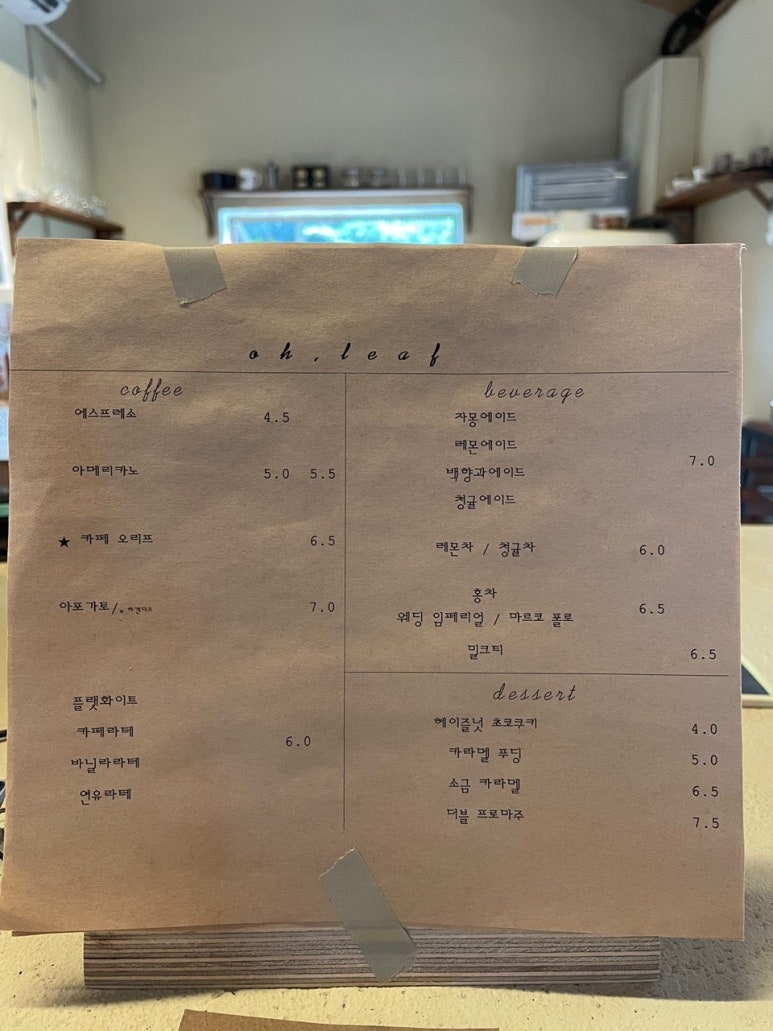 oh, leaf
coffee
에스프레소 4.5
아메리카노 5.0 5.5
★ 카페 오리프 6.5
아포가토/ 7.0
플랫화이트
카페라떼
6.0
바닐라라떼
연유라떼
beverage
자몽에이드
레몬에이드
7.0
백향과에이드
청귤에이드
레몬차 / 청귤차 6.0
홍차
6.5
웨딩 임페리얼 / 마르코 폴로
밀크티 6.5
dessert
헤이즐넛 초코쿠키 4.0
카라멜 푸딩 5.0
소금 카라멜 6.5
더블 프로마주 7.5